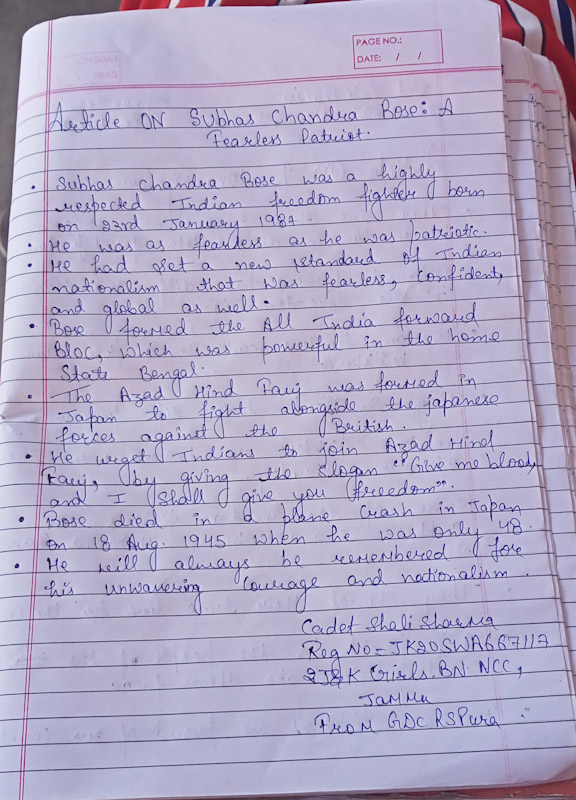 PAGE NO.:
DATE: / /
Article ON Subhas Chandra Bose: A
Fearless Patriot.
• Subhas Chandra Bose was a highly
respected Indian freedom fighter born
on 23rd January 1987.
• He was as fearless as he was patriotic.
• He had set a new standard of Indian
nationalism that was fearless, confident,
and global as well.
• Bose formed the All India forward
Bloc, which was powerful in the home
State Bengal.
• The Azad Hind Fauj was formed in
Japan to fight alongside the japanese
forces against the British.
• He urget Indians to join Azad Hind
Fauj, by giving the slogan "Give me blood,
and I shall give you freedom".
• Bose died in a plane crash in Japan
on 18 Aug. 1945 when he was only 48.
• He will always be remembered fore
his unwavering courage and nationalism.
Cadet Shali Sharma
Reg NO = JK20SWA667117
2J&K Girls BN NCC,
Jammu
From GDC RSPura